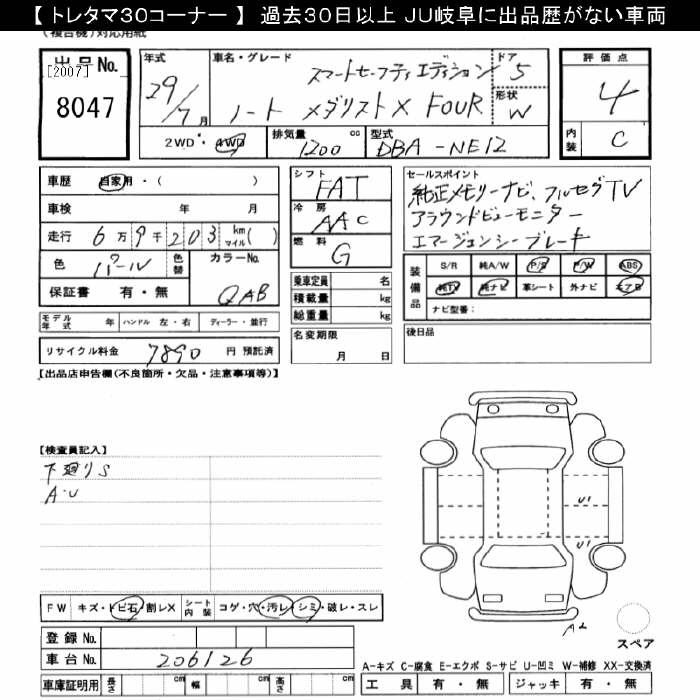 【 トレタマ30コーナー 】 過去30日以上 JU岐阜に出品歴がない車両
(複合機)対応用紙
出品No.
[2007]
8047
年式
29/7月
車名・グレード
スマートセーフティエディション
ノート メダリストX FOUR
ドア
5
形状
W
評価点
4
内装
C
2WD・4WD
排気量
1200 cc
型式
DBA-NE12
車歴 自家用・( )
車検 年 月
走行 6万9千203 km マイル( )
色 パール 色替
カラーNo. QAB
保証書 有・無
シフト
FAT
冷房
AAC
燃料
G
乗車定員 名
積載量 kg
総重量 kg
セールスポイント
純正メモリーナビ、フルセグTV
アラウンドビューモニター
エマージェンシーブレーキ
装備品
S/R 純A/W P/S P/W ABS
純TV 純ナビ 革シート 外ナビ エアB
ナビ型番:
モデル年式 年 ハンドル 左・右 ディーラー・並行
名変期限
月 日
後日品
リサイクル料金 7890 円 預託済
【出品店申告欄(不良箇所・欠品・注意事項等)】
【検査員記入】
下廻りS
A・U
U1
U1
A2
スペア
FW キズ・トビ石・割レX
シート内装 コゲ・穴・汚レ・シミ・破レ・スレ
登録No.
車台No. 206126
車庫証明用 長さ cm 幅 cm 高さ cm
A-キズ C-腐食 E-エクボ S-サビ U-凹ミ W-補修 XX-交換済
工具 有・無 ジャッキ 有・無